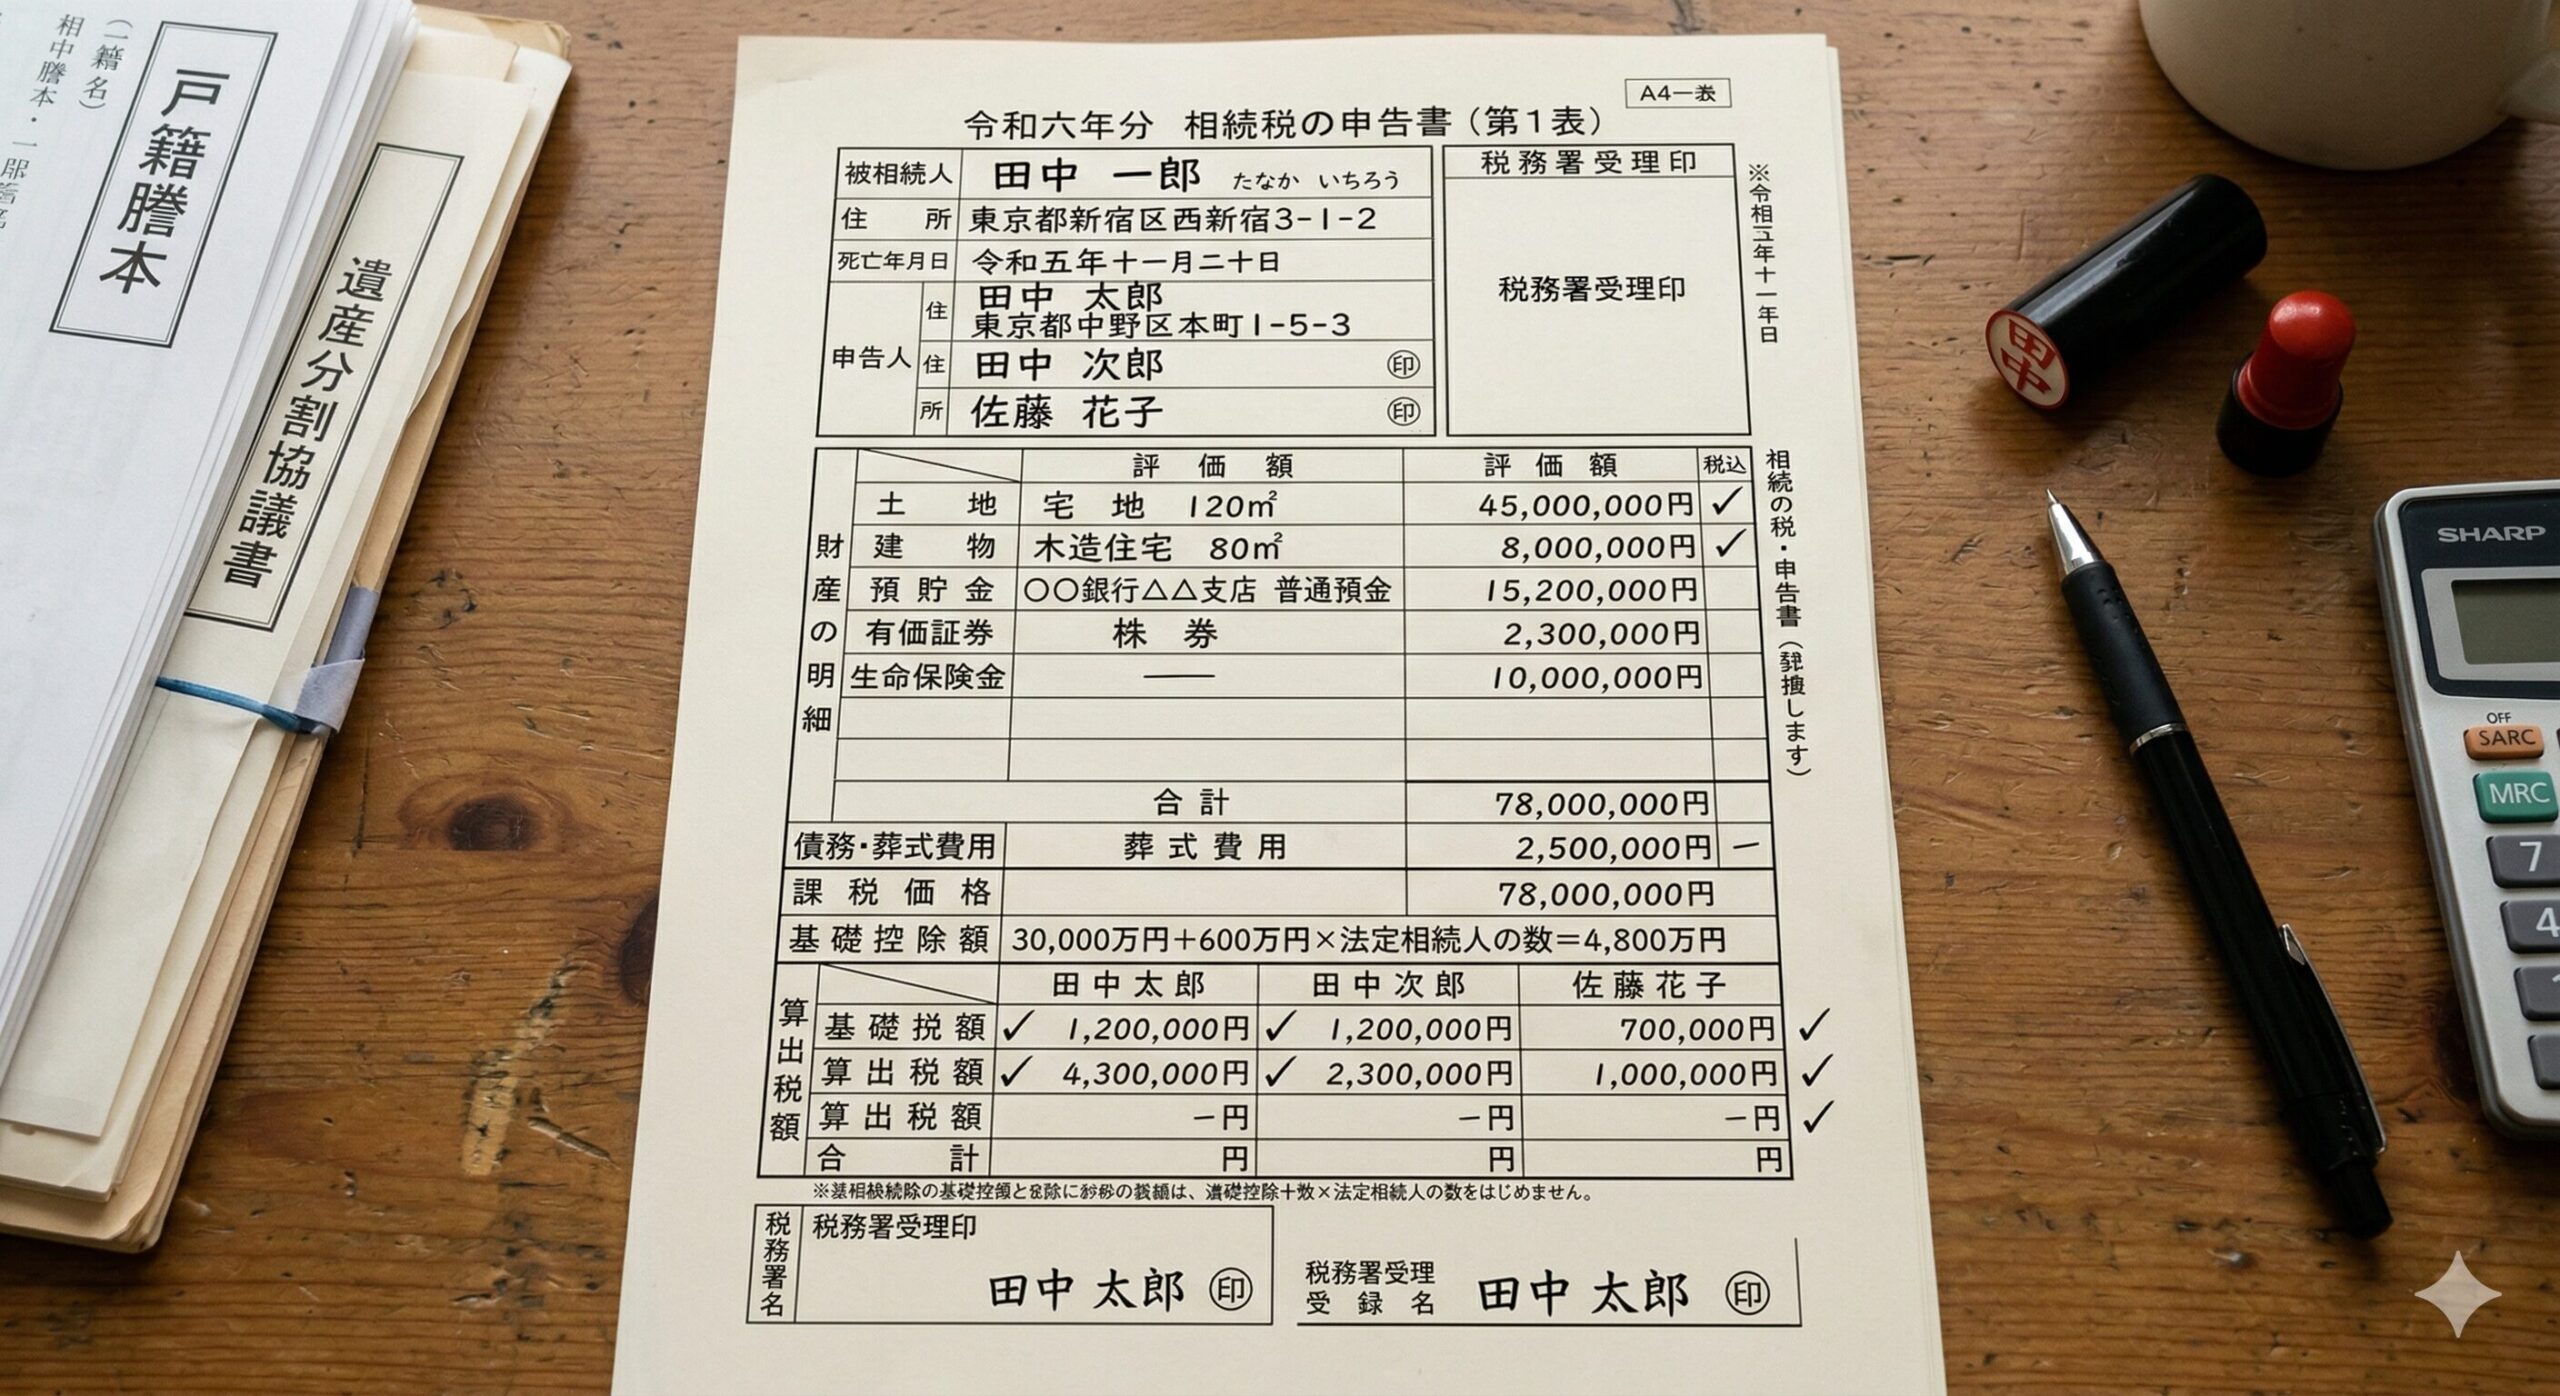 戸籍謄本
遺産分割協議書
A4一表
令和六年分 相続税の申告書（第1表）
被相続人 田中 一郎 たなか いちろう
住所 東京都新宿区西新宿3-1-2
死亡年月日 令和五年十一月二十日
申告人
住 田中 太郎
東京都中野区本町1-5-3
住 田中 次郎 ㊞
所 佐藤 花子 ㊞
税務署受理印
税務署受理印
※令相五年十一年日
財産の明細
評価額 評価額 税込
土地 宅地 120㎡ 45,000,000円 ✓
建物 木造住宅 80㎡ 8,000,000円 ✓
預貯金 〇〇銀行△△支店 普通預金 15,200,000円
有価証券 株券 2,300,000円
生命保険金 — 10,000,000円
合計 78,000,000円
債務・葬式費用 葬式費用 2,500,000円 ー
課税価格 78,000,000円
基礎控除額 30,000万円＋600万円×法定相続人の数＝4,800万円
相続の税・申告書
します）
算出税額
田中太郎 田中次郎 佐藤花子
基礎税額 ✓ 1,200,000円 ✓ 1,200,000円 700,000円 ✓
算出税額 ✓ 4,300,000円 ✓ 2,300,000円 1,000,000円 ✓
算出税額 ー円 ー円 ー円 ✓
合計 円 円 円
×法定相続人の数をはじめません。
税務署名
税務署受理印
田中 太郎 ㊞
税務署受理
受録名
田中 太郎 ㊞
田中
SHARP
OFF
SARC
MRC
7
4